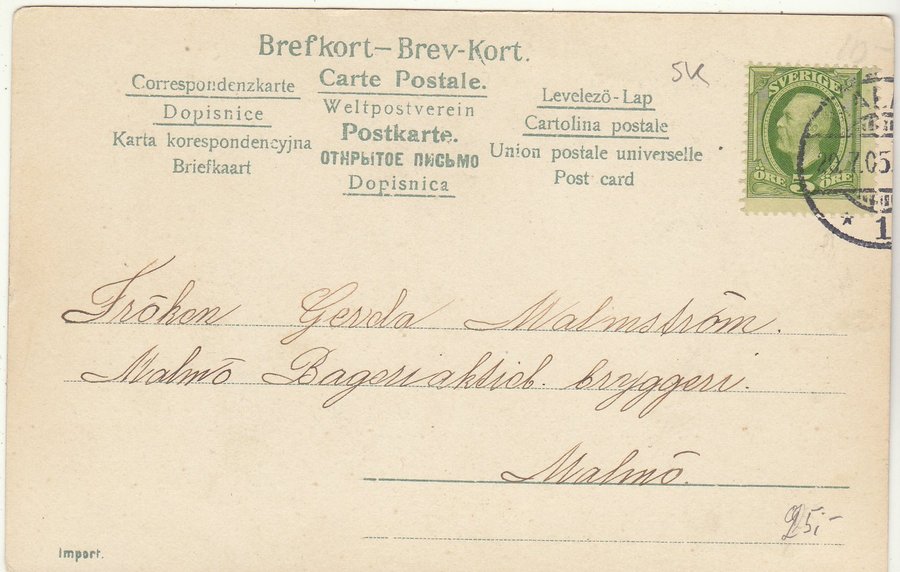 Brefkort – Brev-Kort.
Correspondenzkarte
Dopisnice
Karta korespondencyjna
Briefkaart
Carte Postale.
Weltpostverein
Postkarte.
ОТКРЫТОЕ ПИСЬМО
Dopisnica
Levelező-Lap
Cartolina postale
Union postale universelle
Post card
SK
SVERIGE
5
ÖRE ÖRE
.7.05.
* 1
Fröken Gerda Malmström.
Malmö Bageriaktieb. bryggeri.
Malmö.
25:-
Import.